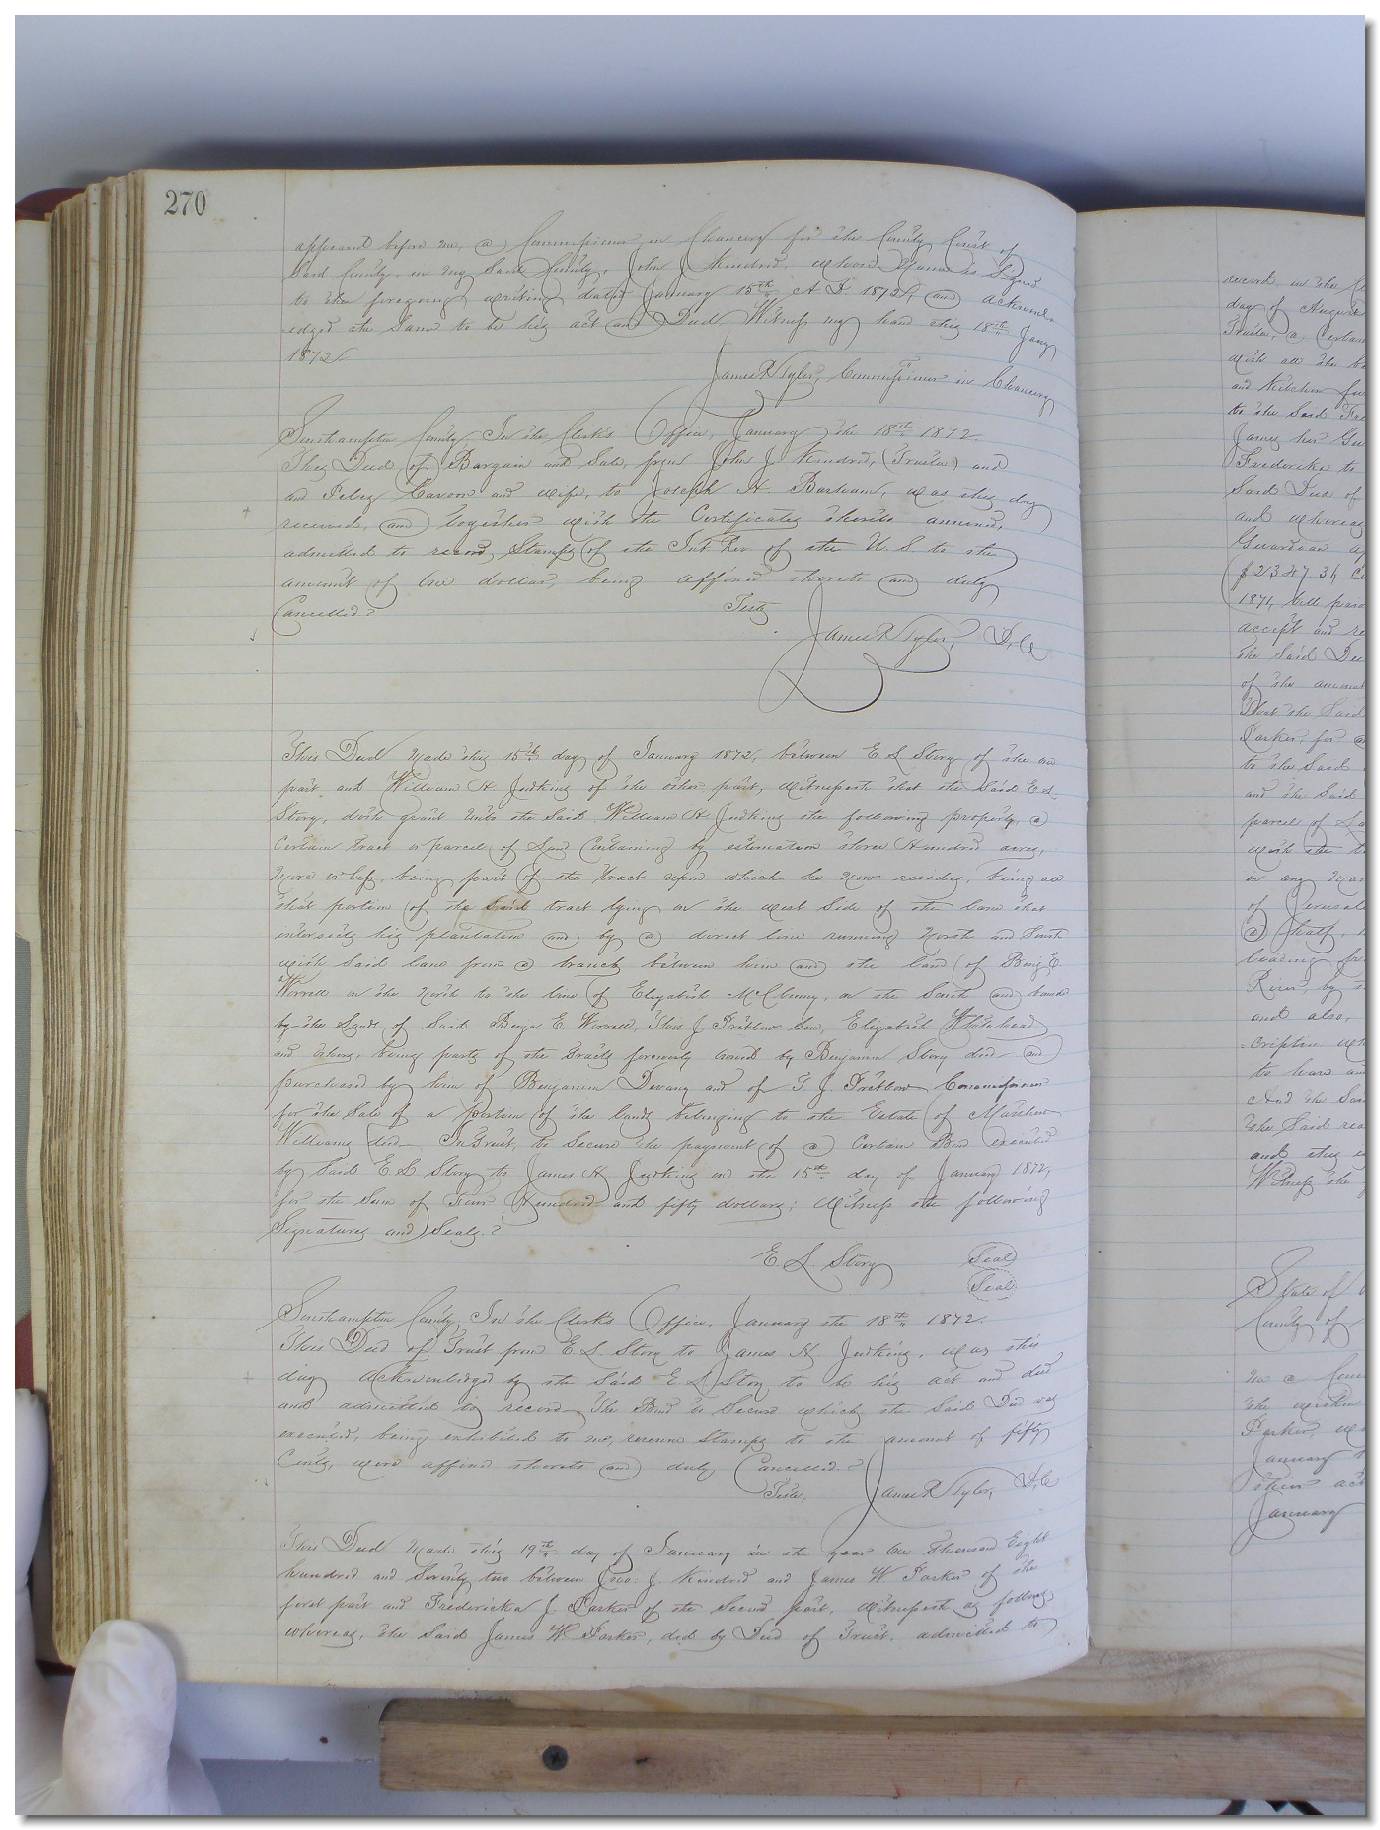 270
appeared before me, a Commissioner in Chancery for the County Court of
Said County, in my Said County, John J Kindred, whose Name is Signed
to the foregoing writing dated January 15th A D. 1872, and acknowl-
edged the Same to be his act and Deed Witness my hand this 18th Jany
1872
James R Tyler, Commissioner in Chancery
Southampton County, In the Clerk's Office, January the 18th 1872
This Deed of Bargain and Sale, from John J Kindred, (Trustee) and
and and wife, to Joseph H. Barham, was this day
received, and together with the Certificates thereto annexed,
admitted to record, Stamps of the Int Rev of the U. S. to the
amount of One dollar, being affixed thereto and duly
Cancelled
Teste
James R Tyler, D.C
This Deed Made this 15th day of January 1872, between E L Story of the one
part and William H Judkins of the other part, Witnesseth that the Said E L
Story, doth grant unto the Said William H Judkins the following property, a
Certain tract or parcel of Land Containing by estimation three Hundred acres,
more or less, being part of the tract upon which he now resides, being all
that portion of the Said tract lying on the west Side of the lane that
intersects his plantation and by a direct line running North and South
with Said lane from a branch between him and the land of Benj E.
Worrell on the North to the line of Elizabeth McClenny, on the South and bound
by the Lands of Said Benja E Worrell, Thos J Pretlow Senr, Elizabeth Whitehead
and others, being parts of the tracts formerly owned by Benjamin Story decd and
purchased by him of Benjamin Devany and of T. J. Pretlow Commissioner
for the Sale of a portion of the lands belonging to the Estate of Matthew
Williams decd In Trust, to Secure the payment of a Certain Bond executed
by Said E L Story to James H Judkins on the 15th day of January 1872,
for the Sum of Four Hundred and fifty dollars; Witness the following
Signatures and Seals.
E L Story Seal
Seal
Southampton County, In the Clerk's Office, January the 18th 1872.
This Deed of Trust from E. L. Story to James H Judkins, was this
day acknowledged by the Said E L Story to be his act and deed
and admitted to record. The Bond to Secure which the Said Deed was
executed, being exhibited to me, revenue Stamps to the amount of fifty
Cents, were affixed thereto and duly Cancelled.
Teste, James R Tyler, D.C
This Deed Made this 19th day of January in the year One Thousand Eight
hundred and Seventy two between Jno. J. Kindred and James W Parker of the
first part and Fredericka J. Parker of the Second part. Witnesseth as follows,
whereas, the Said James W Parker, did by Deed of Trust admitted to
record, in the
day of August
Trustee, a Certain
with all the
and Kitchen
to the Said
James her
Fredericka to
Said Deed of
and whereas
Guardian
$2347 34
1871,
accept and
the Said
of the amount
That the Said
Parker, for
to the Said
and the Said
parcel of
with the
in any
of Jerusalem
a half,
leading
River, by
and also,
-cription
to have and
And the Said
the Said
and this
Witness the
State of
County of
me a
the written
Parker,
January
their act
January